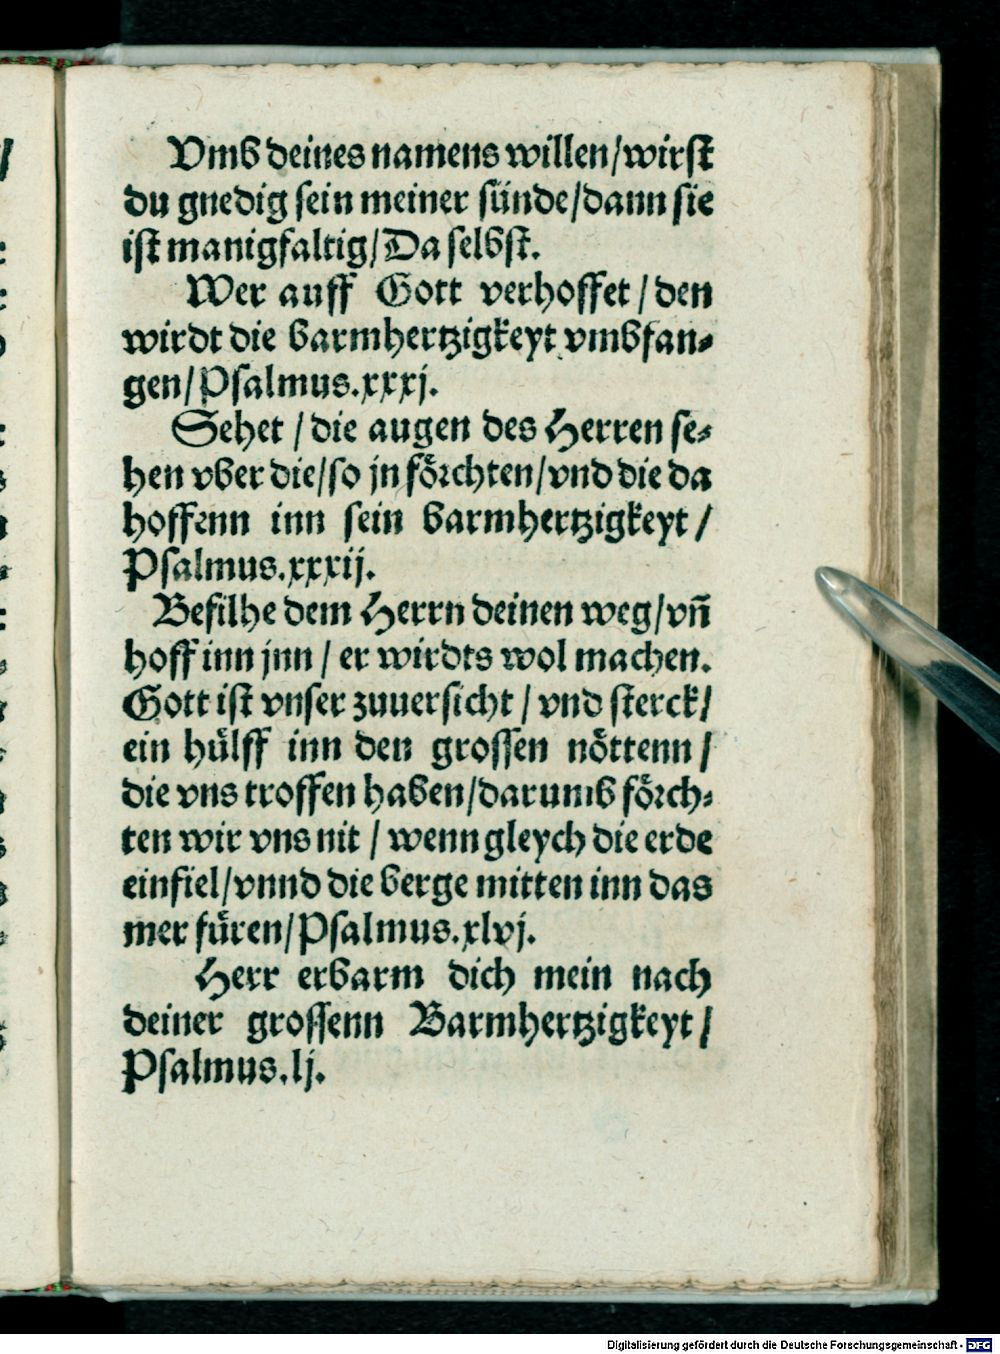 Vmb deines namens willen/wirst
du gnedig sein meiner sünde/dann sie
ist manigfaltig/Da selbst.
Wer auff Gott verhoffet/den
wirdt die barmhertzigkeyt vmbfan⸗
gen/Psalmus.xxxj.
Sehet/die augen des Herren se⸗
hen vber die/so jn föꝛchten/vnd die da
hoffenn inn sein barmhertzigkeyt/
Psalmus.xxxij.
Befilhe dem Herrn deinen weg/vñ
hoff inn jnn/er wirdts wol machen.
Gott ist vnser zuuersicht/vnd sterck/
ein hülff inn den grossen nöttenn/
die vns troffen haben/darumb föꝛch⸗
ten wir vns nit/wenn gleych die erde
einfiel/vnnd die berge mitten inn das
mer füren/Psalmus.xlvj.
Herr erbarm dich mein nach
deiner grossenn Barmhertzigkeyt/
Psalmus.lj.
Digitalisierung gefördert durch die Deutsche Forschungsgemeinschaft - DFG